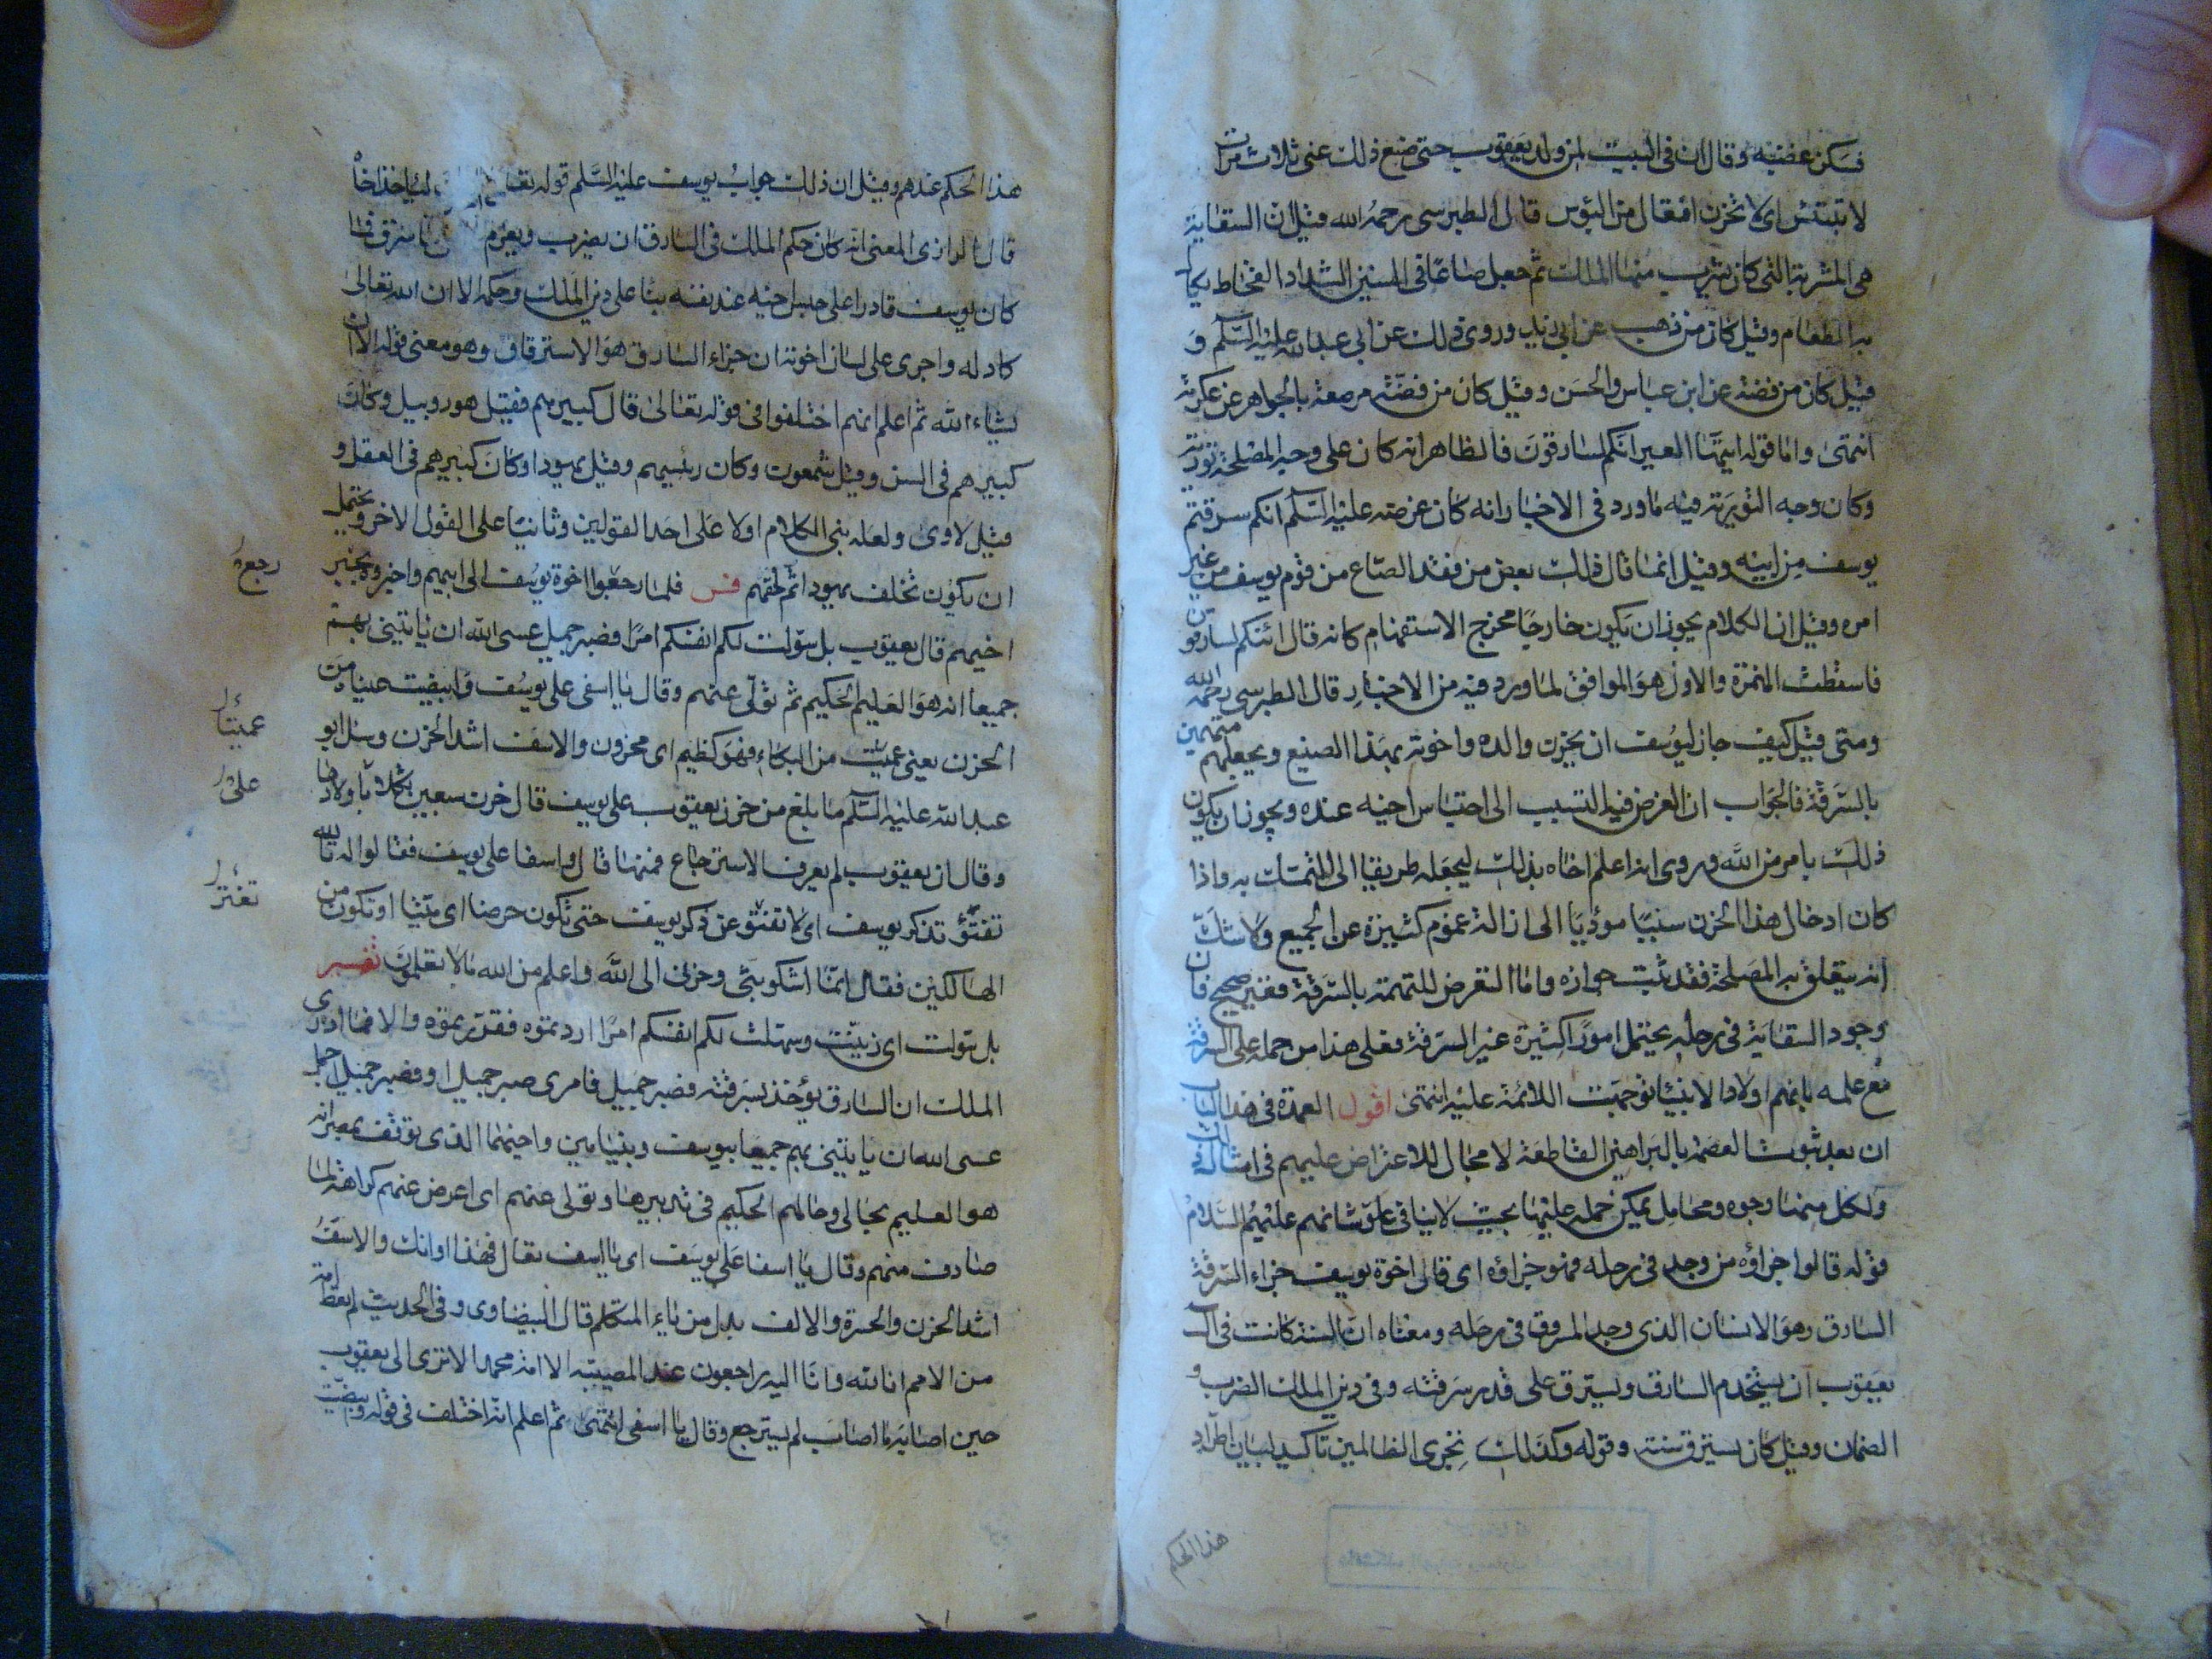 فسكن غضبه وقال ان فى البيت لمن ولد يعقوب حتى صنع ذلك عنى ثلاث مرات
لا تبتئس اى لا تحزن افتعال من البؤس قال الطبرسى رحمه الله وقيل ان السقاية
هى المشربة التى كان يشرب منها الملك ثم جعل صاعا فى السنين الشداد القحاط يكال
به الطعام وقيل كان من ذهب عن ابن زيد وروى ذلك عن ابى عبد الله عليه السلم و
قيل كان من فضة عن ابن عباس والحسن وقيل كان من فضة مرصعة بالجواهر عن عكرمة
انتهى واما قوله ايتها العير انكم لسارقون فالظاهر انه كان على وجه المصلحة تورية
وكان وجه التورية فيه ما ورد فى الاخبار انه كان غرضه عليه السلم انكم سرقتم
يوسف من ابيه وقيل انما قال ذلك بعض من فقد الصاع من قوم يوسف من غير
امره وقيل ان الكلام يجوز ان يكون خارجا مخرج الاستفهام كانه قال ائنكم لسارقون
فاسقطت الهمزة والاول هو الموافق لما ورد فيه من الاخبار قال الطبرسى رحمه الله
ومتى قيل كيف جاز ليوسف ان يحزن والده واخوته بهذا الصنيع ويجعلهم متهمين
بالسرقة فالجواب ان الغرض فيه التسبب الى احتباس اخيه عنده ويجوز ان يكون
ذلك بامر من الله وروى انه اعلم اخاه بذلك ليجعله طريقا الى التمسك به واذا
كان ادخال هذا الحزن سببا مؤديا الى ازالة غموم كثيرة عن الجميع ولا شك
انه يتعلق به المصلحة فقد ثبت جوازه واما التعرض للتهمة بالسرقة فغير صحيح فان
وجود السقاية فى رحله يحتمل امورا كثيرة غير السرقة فعلى هذا من حمله على السرقة
مع علمه بانهم اولاد الانبياء توجهت اللائمة عليه انتهى اقول العمدة فى هذا الباب
ان بعد ثبوت العصمة بالبراهين القاطعة لا مجال للاعتراض عليهم فى امثال ذلك
ولكل منها وجوه ومحامل يمكن حمله عليها بحيث لا ينافى علو شانهم عليهم السلام
قوله قالوا جزاؤه من وجد فى رحله فهو جزاؤه اى قال اخوة يوسف جزاء السرقة
السارق وهو الانسان الذى وجد المسروق فى رحله ومعناه ان السنة كانت فى آل
يعقوب ان يستخدم السارق ويسترق على قدر سرقته وفى دين الملك الضرب و
الضمان وقيل كان يسترق سنة وقوله وكذلك نجزى الظالمين تاكيد لبيان اطراد
هذا الحكم
هذا الحكم عندهم وقيل ان ذلك جواب يوسف عليه السلم قوله تعالى ليأخذ اخاه
قال الرازى المعنى انه كان حكم الملك فى السارق ان يضرب ويغرم ما سرق فما
كان يوسف قادرا على حبس اخيه عند نفسه بناء على دين الملك وحكمه الا ان الله تعالى
كاد له واجرى على لسان اخوته ان جزاء السارق هو الاسترقاق وهو معنى قوله الا ان
يشاء الله ثم اعلم انهم اختلفوا فى قوله تعالى قال كبيرهم فقيل هو روبيل وكان
كبيرهم فى السن وقيل شمعون وكان رئيسهم وقيل يهودا وكان كبيرهم فى العقل و
قيل لاوى ولعله بنى الكلام اولا على احد القولين وثانيا على القول الاخر ويحتمل
ان يكون تخلف يهودا ثم لحقهم فس فلما رجعوا اخوة يوسف الى ابيهم واخبروه بخبر
رجع
اخيهم قال يعقوب بل سولت لكم انفسكم امرا فصبر جميل عسى الله ان يأتينى بهم
جميعا انه هو العليم الحكيم ثم تولى عنهم وقال يا اسفى على يوسف وابيضت عيناه من
الحزن يعنى عميت من البكاء فهو كظيم اى محزون والاسف اشد الحزن وسئل ابو
عميتا
عبد الله عليه السلم ما بلغ من حزن يعقوب على يوسف قال حزن سبعين ثكلى باولادها
على
وقال ان يعقوب لم يعرف الاسترجاع فمنها قال واسفا على يوسف فقالوا له تالله
تفتؤ تذكر يوسف اى لا تفتؤ عن ذكر يوسف حتى تكون حرضا اى ميتا او تكون من
تفتر
الهالكين فقال انما اشكو بثى وحزنى الى الله واعلم من الله ما لا تعلمون تفسير
بل سولت اى زينت وسهلت لكم انفسكم امرا اردتموه فقدرتموه والا فما ادرى
الملك ان السارق يؤخذ بسرقته فصبر جميل فامرى صبر جميل او فصبر جميل اجمل
عسى الله ان يأتينى بهم جميعا بيوسف وبنيامين واخيهما الذى توقف بمصر انه
هو العليم بحالى وحالهم الحكيم فى تدبيرها وتولى عنهم اى اعرض عنهم كراهة لما
صادف منهم وقال يا اسفا على يوسف اى يا اسف تعال فهذا اوانك والاسف
اشد الحزن والحسرة والالف بدل من ياء المتكلم قال البيضاوى وفى الحديث لم تعط امة
من الامم انا لله وانا اليه راجعون عند المصيبة الا امة محمد الا ترى الى يعقوب
حين اصابه ما اصاب لم يسترجع وقال يا اسفى انتهى ثم اعلم انه اختلف فى قوله وابيضت